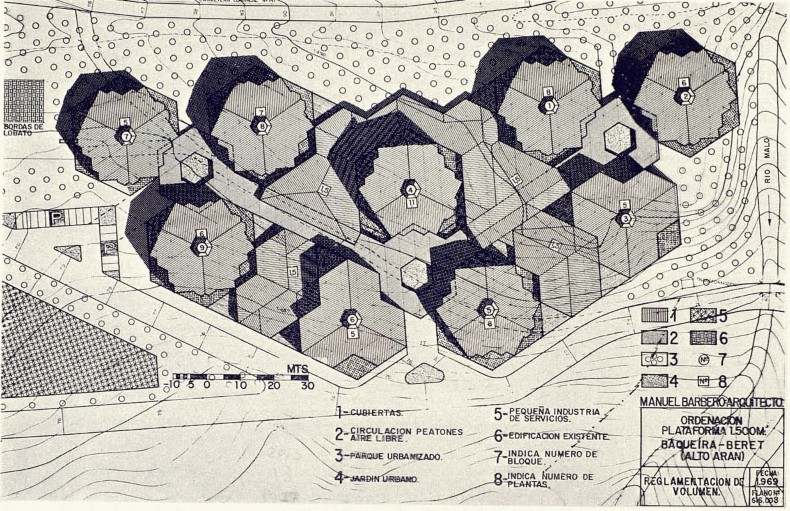 BORDAS DE
LOBATO
RIO MALO
6
7
7
8
8
1
6
2
4
11
5
3
6
9
6
5
P
P
1.5
1.5
1.5
1 5
2 6
3 Nº 7
4 Nº 8
MTS.
10 5 0 10 20 30
1-CUBIERTAS.
2-CIRCULACION PEATONES
AIRE LIBRE.
3-PARQUE URBANIZADO.
4-JARDIN URBANO.
5-PEQUEÑA INDUSTRIA
DE SERVICIOS.
6-EDIFICACION EXISTENTE.
7-INDICA NUMERO DE
BLOQUE.
8-INDICA NUMERO DE
PLANTAS.
MANUEL BARBERO-ARQUITECTO.
ORDENACION
PLATAFORMA 1.500M.
BAQUEIRA-BERET
(ALTO ARAN)
REGLAMENTACION DE
VOLUMEN.
FECHA:
1.969
PLANO Nº